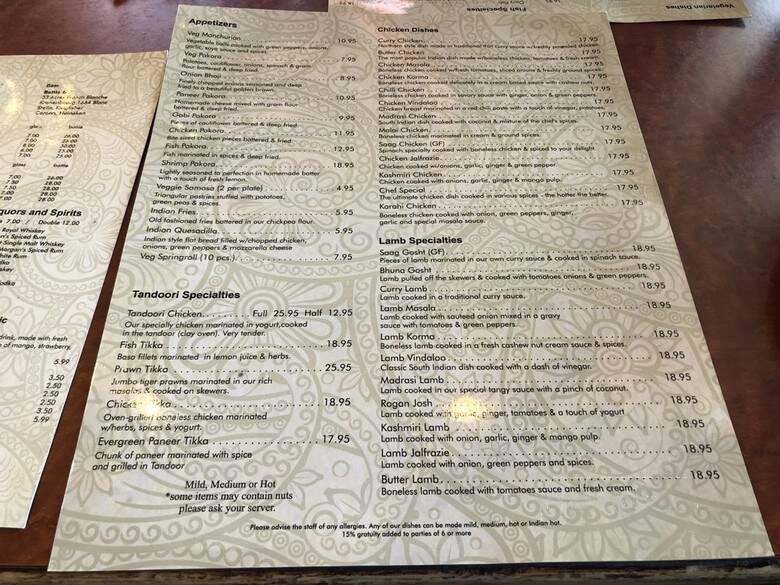 Vegetarian Dishes
Fish Specialties
Appetizers
Veg Manchurian 10.95
Vegetable balls cooked with green peppers, onions,
garlic, soya sauce and spices.
Veg Pakora 7.95
Potatoes, cauliflower, onions, spinach & gram
flour battered & deep fried.
Onion Bhaji 8.95
Finely chopped onions battered and deep
fried to a beautiful golden brown.
Paneer Pakora 10.95
Homemade cheese mixed with gram flour
battered & deep fried.
Gobi Pakora 9.95
Pieces of cauliflower battered & deep fried.
Chicken Pakora 11.95
Bite sized chicken pieces battered & fried.
Fish Pakora 12.95
Fish marinated in spices & deep fried.
Shrimp Pakora 18.95
Lightly seasoned to perfection in homemade batter
with a touch of fresh lemon.
Veggie Samosa (2 per plate) 4.95
Triangular pastries stuffed with potatoes,
green peas & spices.
Indian Fries 5.95
Old fashioned fries battered in our chickpea flour.
Indian Quesadilla 5.95
Indian style flat bread filled w/chopped chicken,
onions, green peppers & mozzarella cheese
Veg Springroll (10 pcs.) 7.95
Tandoori Specialties
Tandoori Chicken Full 25.95 Half 12.95
Our specialty chicken marinated in yogurt,cooked
in the tandoor (clay oven). Very tender.
Fish Tikka 18.95
Basa fillets marinated in lemon juice & herbs.
Prawn Tikka 25.95
Jumbo tiger prawns marinated in our rich
masalas & cooked on skewers.
Chicken Tikka 18.95
Oven-grilled boneless chicken marinated
w/herbs, spices & yogurt.
Evergreen Paneer Tikka 17.95
Chunk of paneer marinated with spice
and grilled in Tandoor
Mild, Medium or Hot
*some items may contain nuts
please ask your server.
Chicken Dishes
Curry Chicken 17.95
Northern style dish made in traditional thin curry sauce w/freshly poached chicken.
Butter Chicken 17.95
The most popular Indian dish made w/boneless chicken, tomatoes & fresh cream.
Chicken Masala 17.95
Boneless chicken cooked w/fresh tomatoes, sliced onions & freshly ground spices.
Chicken Korma 17.95
Boneless chicken cooked delicately in a touch of fresh cream, butter with cashews.
Chilli Chicken 17.95
Boneless chicken cooked in savory sauce with ginger, green peppers, onion.
Chicken Vindaloo 17.95
Chicken breast marinated in a red chili paste with a touch of vinegar, potatoes.
Madrasi Chicken 17.95
South Indian dish cooked with coconut & mixture of the chef's spices.
Malai Chicken 17.95
Boneless chicken marinated in cream & ground spices.
Saag Chicken (GF) 17.95
Spinach specialty cooked with boneless chicken & spiced to your delight.
Chicken Jalfrazie 17.95
Chicken cooked w/onions, garlic, ginger & green pepper.
Kashmiri Chicken 17.95
Chicken cooked with onions, garlic, ginger & mango pulp.
Chef Special 17.95
The ultimate chicken dish cooked in various spices - the hotter the better.
Karahi Chicken 17.95
Boneless chicken cooked with onion, green peppers, ginger,
garlic and special masala sauce.
Lamb Specialties
Saag Gosht (GF) 18.95
Pieces of lamb marinated in our own curry sauce & cooked in spinach sauce.
Bhuna Gosht 18.95
Lamb pulled off the skewers & cooked with tomatoes onions & green peppers.
Curry Lamb 18.95
Lamb cooked in a traditional curry sauce.
Lamb Masala 18.95
Lamb cooked with sauteed onion mixed in a gravy
sauce with tomatoes & green peppers.
Lamb Korma 18.95
Boneless lamb cooked in a fresh cashew nut cream sauce & spices.
Lamb Vindaloo 18.95
Classic South Indian dish cooked with a dash of vinegar.
Madrasi Lamb 18.95
Lamb cooked in our special tangy sauce with a pinch of coconut.
Rogan Josh 18.95
Lamb cooked with garlic, ginger, tomatoes & a touch of yogurt
Kashmiri Lamb 18.95
Lamb cooked with onion, garlic, ginger & mango pulp.
Lamb Jalfrazie 18.95
Lamb cooked with onion, green peppers and spices.
Butter Lamb 18.95
Boneless lamb cooked with tomatoes sauce and fresh cream.
Please advise the staff of any allergies. Any of our dishes can be made mild, medium, hot or Indian hot.
15% gratuity added to parties of 6 or more
Beer
Bottle 6
Kronenbourg 1664 Blanc
Stella, Kingfisher
Corona, Heineken
glass bottle
7.00 26.00
7.00 25.00
glass bottle
7.00 26.00
7.50 28.00
7.50 28.00
7.00 28.00
quors and Spirits
7.00 Double 12.00
Royal Whiskey
Spiced Rum
Single Malt Whiskey
Morgan's Spiced Rum
White Rum
drink, made with fresh
of mango, strawberry,
5.99
3.50
2.50
2.50
2.50
3.50
5.99